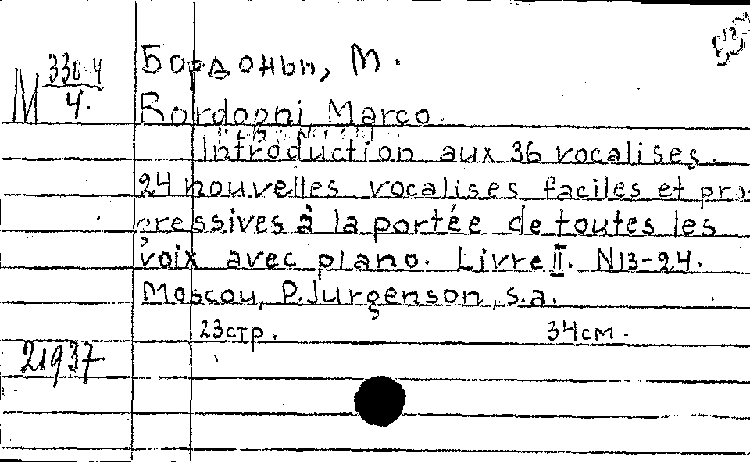 Бордоньи, М.
М 330-4
4.
Bordogni Marco.
Introduction aux 36 vocalises.
24 nouvelles vocalises faciles et pro
gressives à la portée de toutes les
voix avec piano. Livre II. N13-24.
Moscou, P. Jurgenson, s.a.
23стр. 34см.
21937